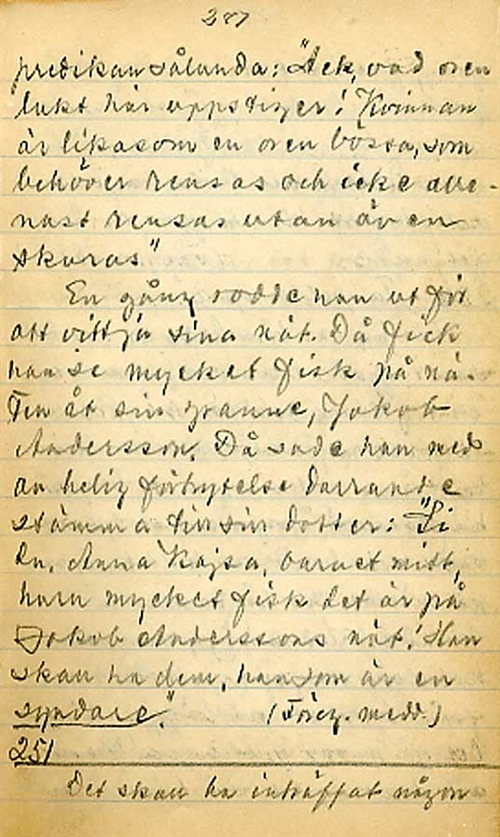 287
predikan sålunda: "Ack, vad oren
lukt här uppstiger! Kvinnan
är likasom en oren bössa, som
behöver rensas och icke alle-
nast rensas utan även
skuras"
En gång rodde han ut för
att vittja sina nät. Då fick
han se mycket fisk på nä-
ten åt sin granne, Jakob
Andersson. Då sade han med
av helig förbytelse darrande
stämma till sin dotter: "Si
du, Anna Kajsa, barnet mitt,
huru mycket fisk det är på
Jakob Anderssons nät! Han
skall ha dem, han som är en
syndare." (Föreg. medd.)
251
Det skall ha inträffat någon